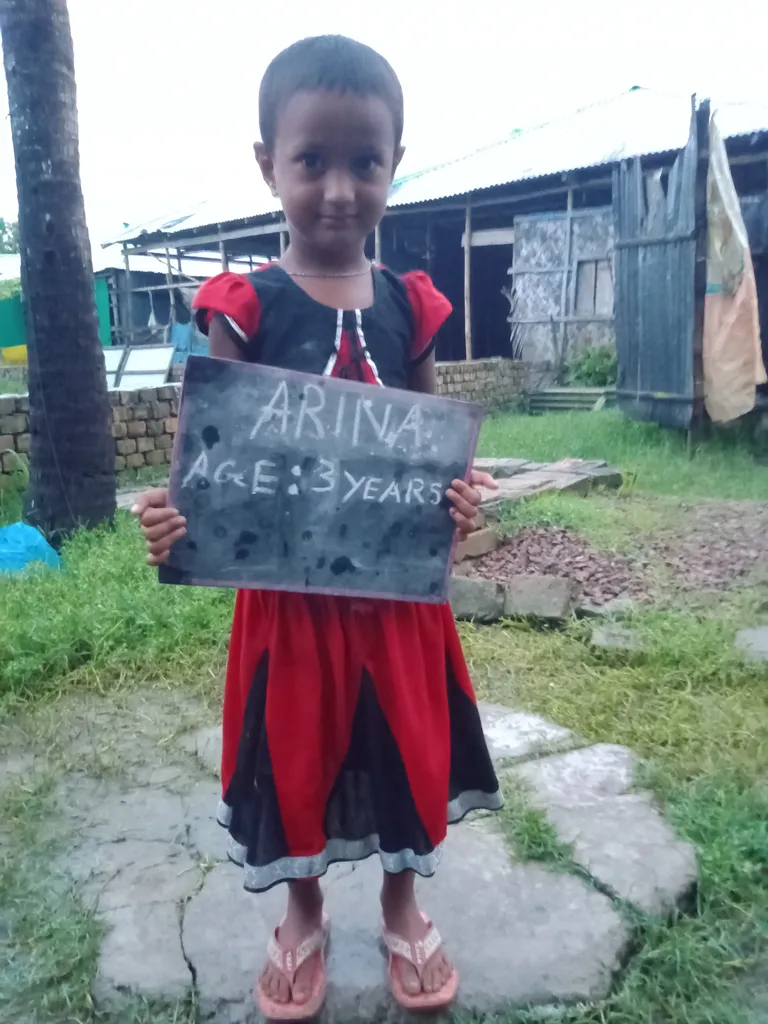 ARINA
AGE: 3 YEARS